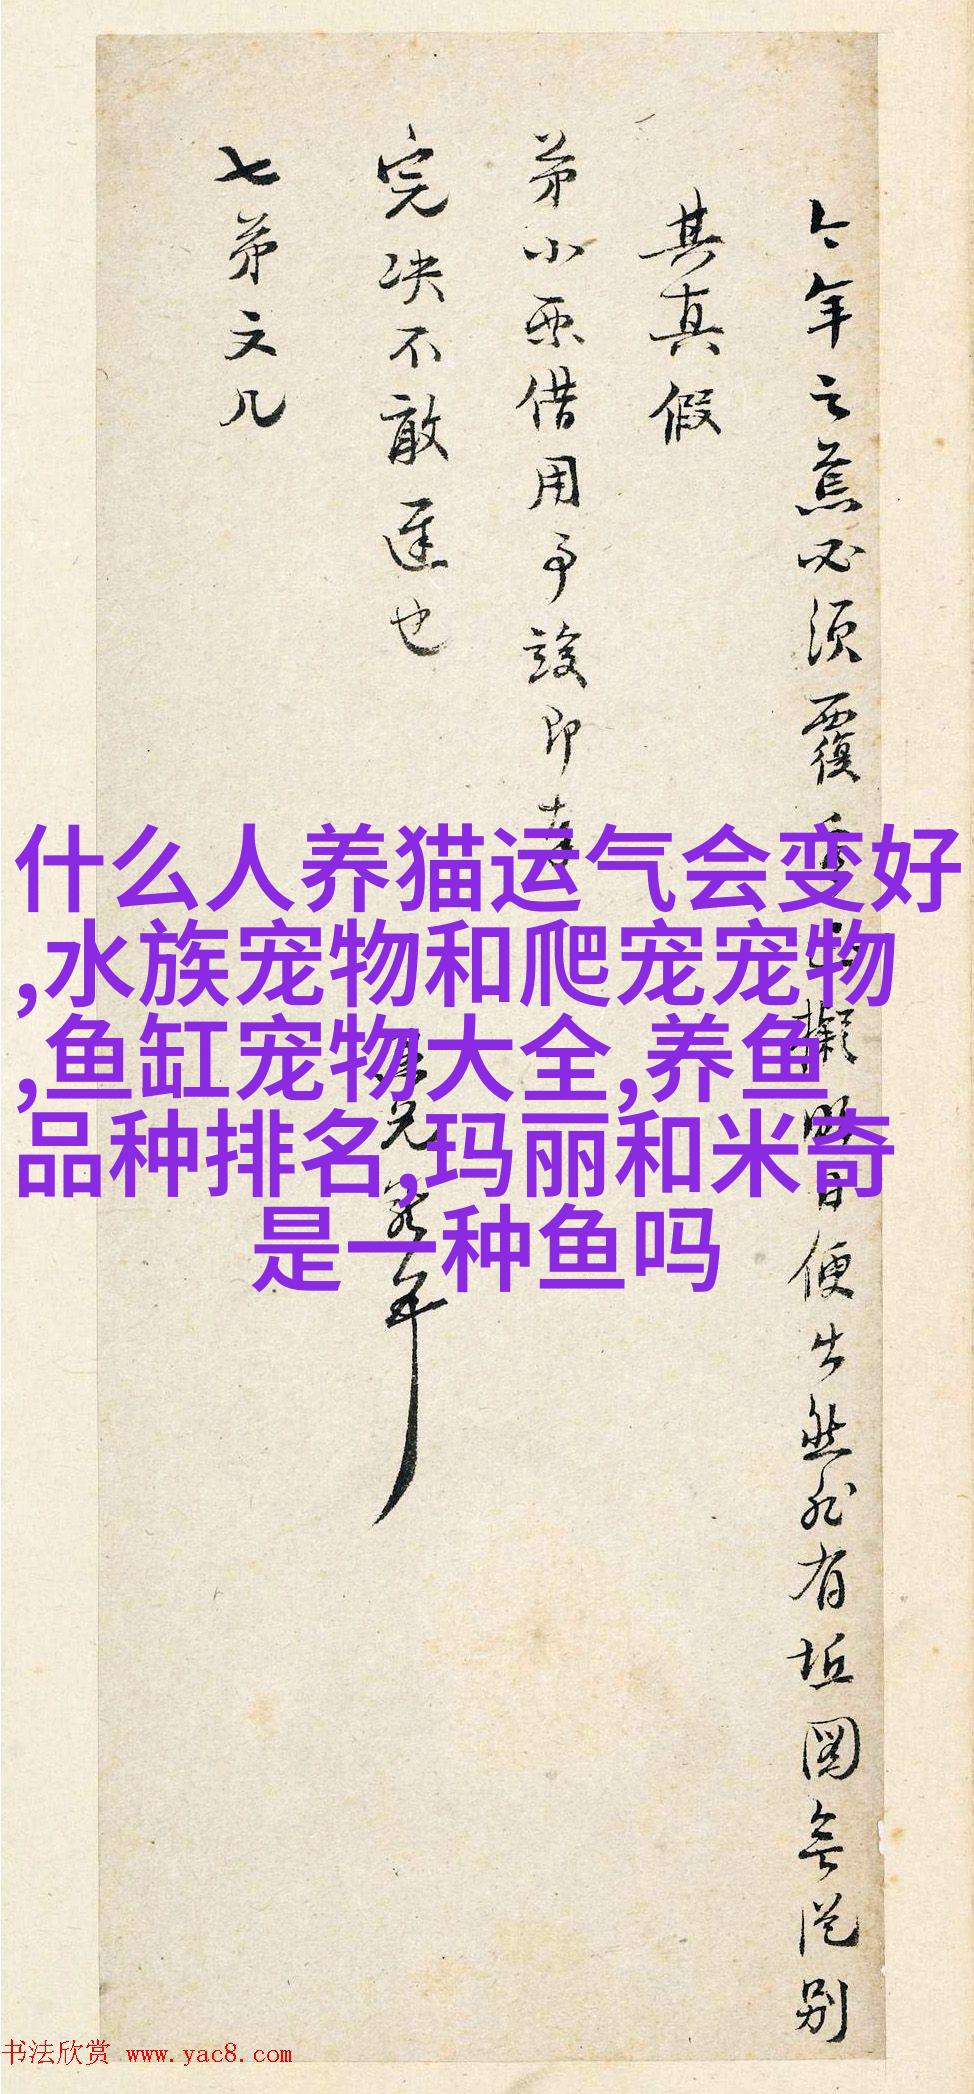 今年之蕉必須覆
便出然必有垢圖無從別
其真假
弟小票借用事竣即
完决不敢遲也
七弟文几
兄
年
什么人养猫运气会变好
,水族宠物和爬宠宠物
,鱼缸宠物大全,养鱼
品种排名,玛丽和米奇
是一种鱼吗
书法欣赏 www.yac8.com